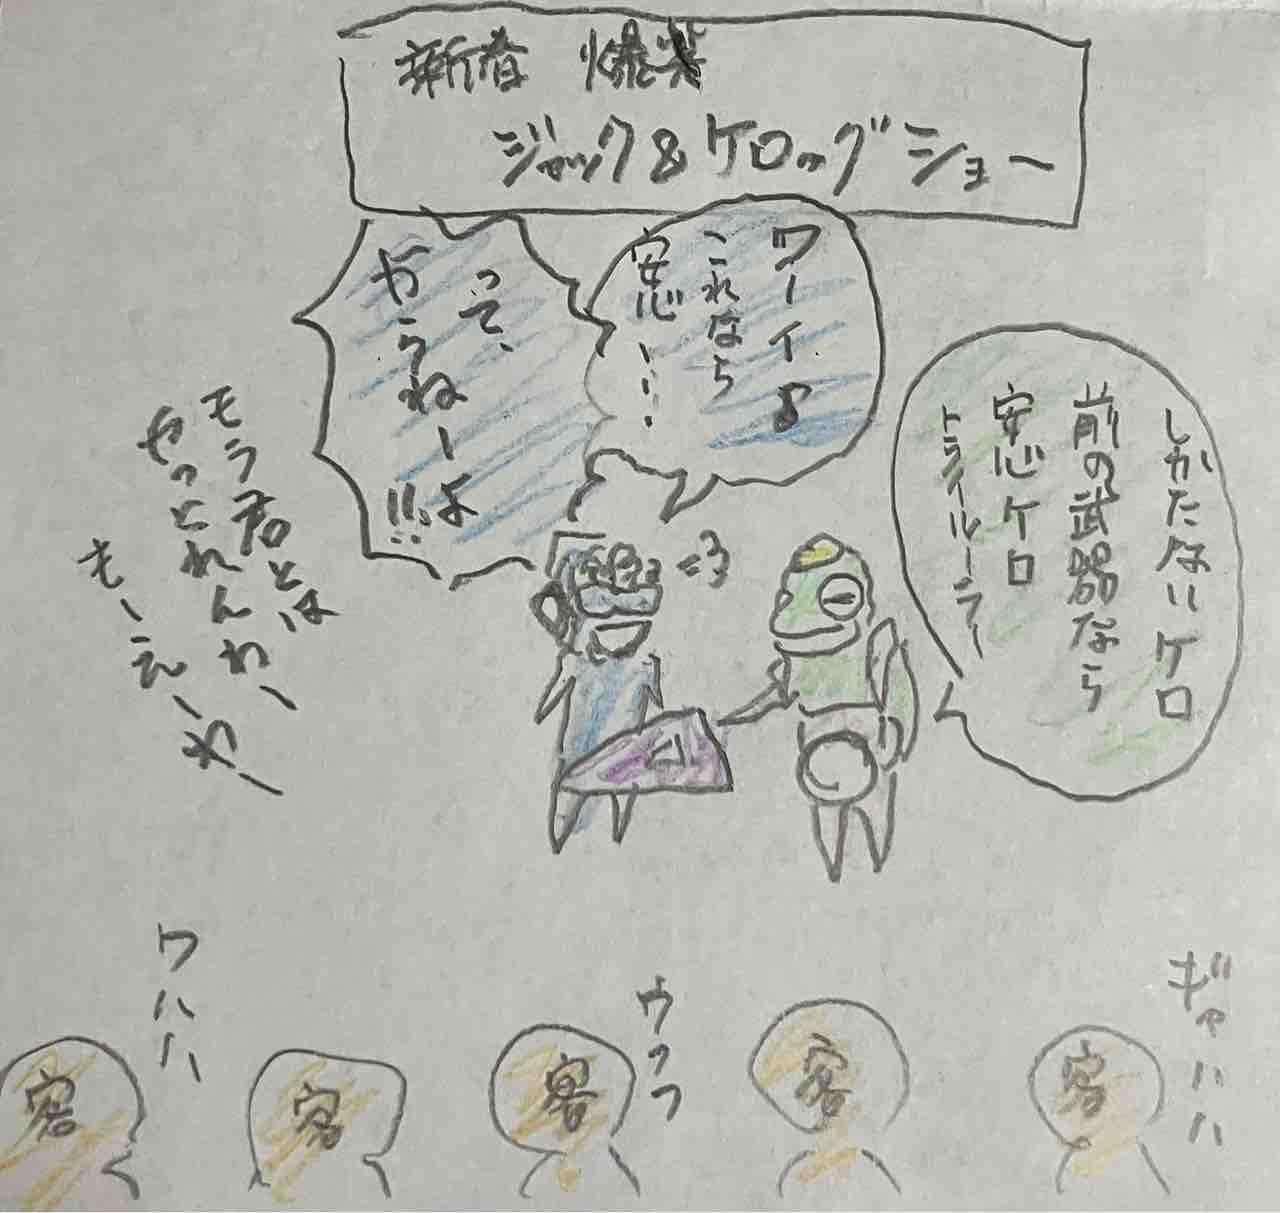 新春 爆笑
ジャック&ケロッグショー
しかたないケロ
前の武器なら
安心ケロ
トライルーラー
ワーイ♪
これなら
安心……
って、
やらねーよ
!!
モウ君とは
やっとれんわー
もーえーわー
ワハハ
ウフフ
ギャハハ
客
客
客
客
客